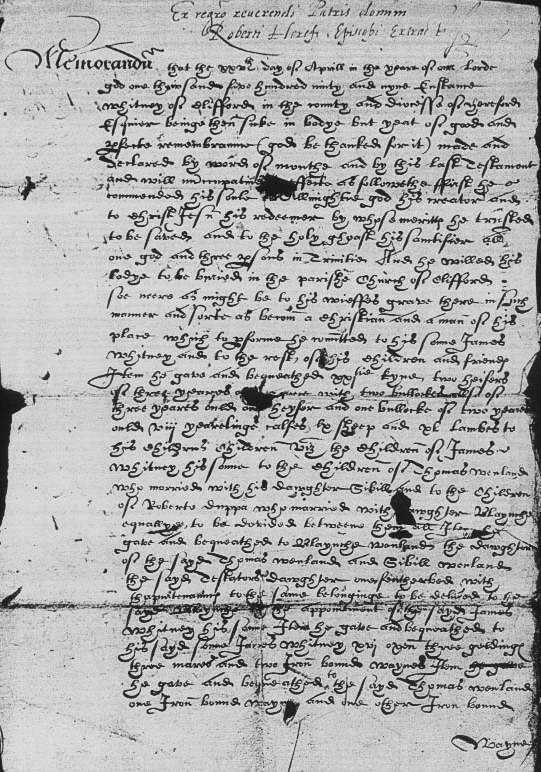 Ex regro reverendi Patris domini
Roberti Heref: Episcopi Extract
Memorandũ that the xxxth day of Aprill in the yeare of our Lorde
god one thowsand fyve hundred nynty and nyne Eustame
whitney of Clifford in the county and diocess of hereford
Esquier beinge then sicke in bodye but yeat of good and
pfecte remembraunce (god be thanked for it) made and
declared by word of mouthe and by this last Testament
and will nuncupative effecte as followethe ffirst he
commended his soule to Allmightie god his creator and
to Christ Jesu his redeemer by whose meritts he trusted
to be saved and to the holy ghoast his sanctifier all
one god and three psons in Trinitie And he willed his
bodye to be buried in the parishe Church of Clifford
soe neere as might be to his wieffes grave there in such
manner and sorte as becom a Christian and a man of his
place which to pforme he comitted to his sonne James
whitney and to the rest of his children and friends
Item he gave and bequeathed xxsie kyne two heifors
of three yeares with two bullocks of
three yeares ould one heyfor and one bullocke of two yeares
ould viij yearelinge calfes lx sheep and xl lambes to
his childrens Children viz the Children of James
whitney his sonne to the Children of Thomas wenland
who married with his dawghter Sibill and to the Children
of Roberto Duppa who married with dawghter Blaynche
equallye, to be devided betweene them all Item he
gave and bequeathed to Blaynche wenland the dawghter
of the sayd Thomas wenland and Sibill wenland
the sayd Testators dawghter one fetherbed with
thappurtenaunces to the same belonginge to be delived to the
sayd Blaynche by the appointment of the sayd James
whitney his sonne Item he gave and bequeathed to
his sayd sonne James whitney xvi oxen three geldings
three mares and two Iron bound waynes Item
he gave and bequeathed to the sayd Thomas wenland
one Iron bound wayne and one other Iron bound
Wayne